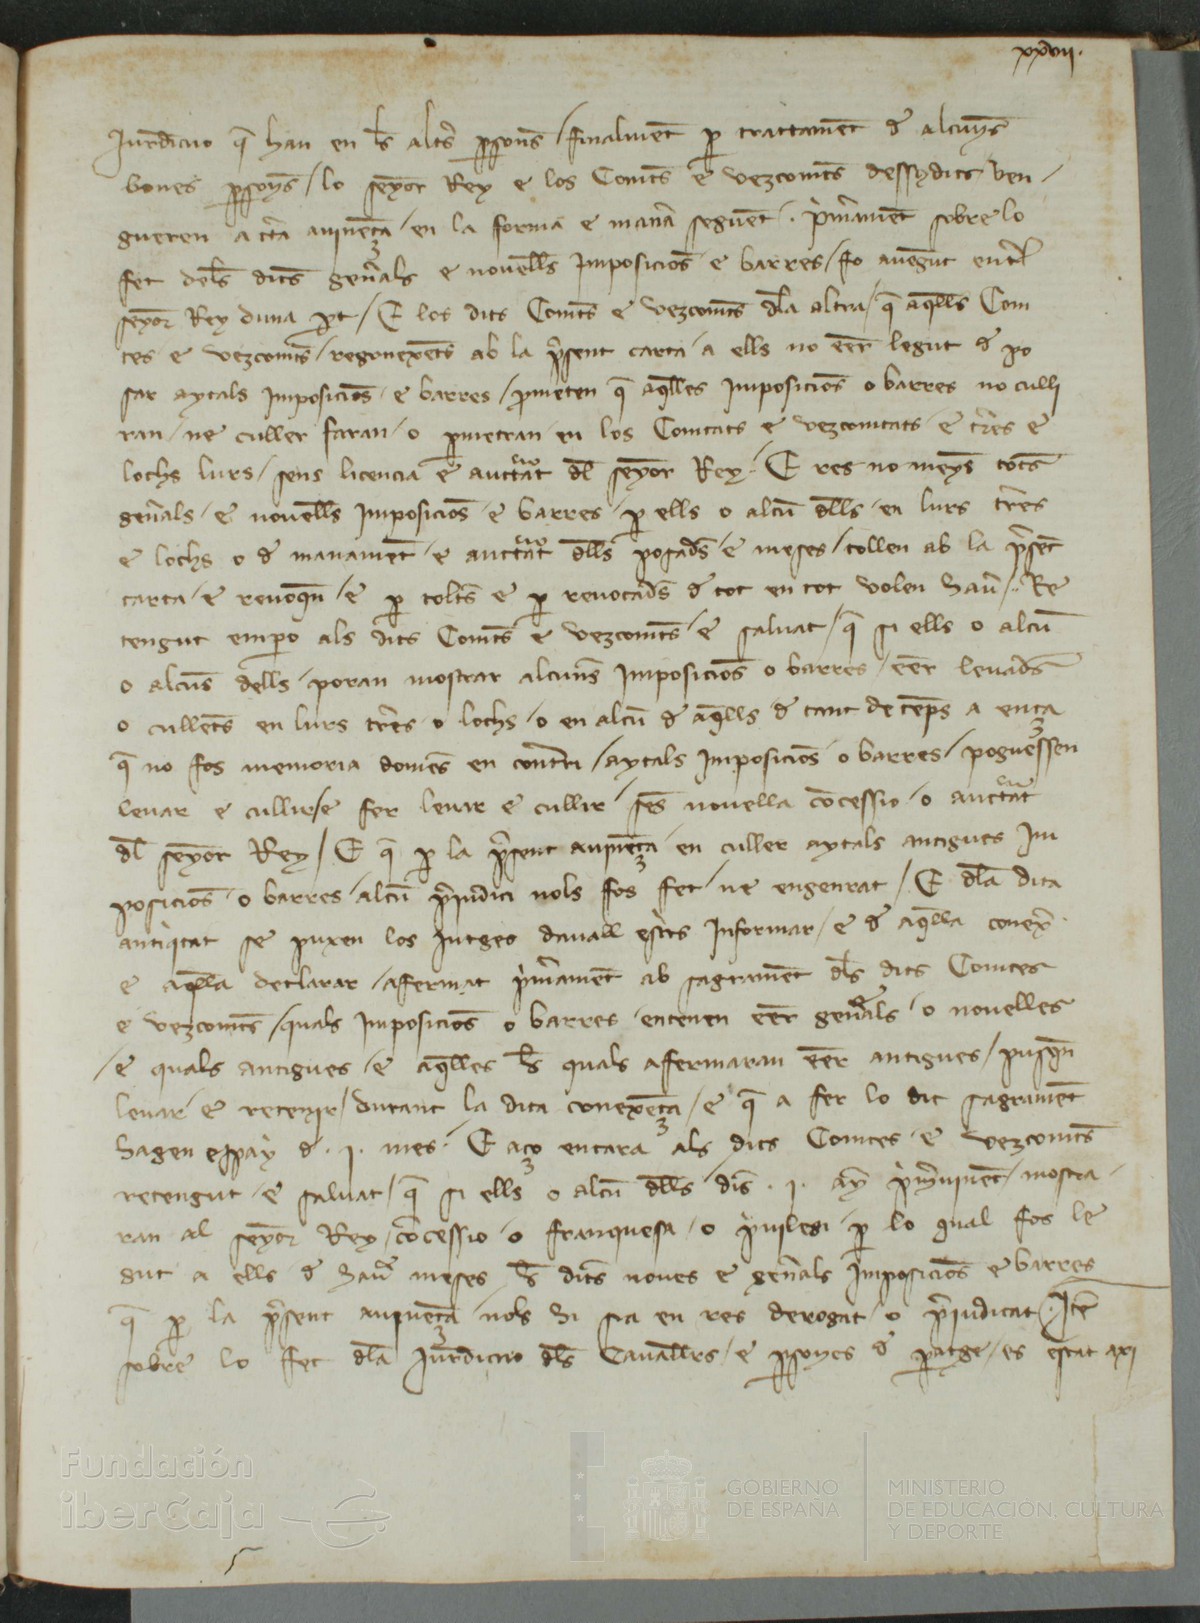 xxvii.
Jurediccio q̄ han en ls altr̄s ꝑsons / finalmēt ꝑ tractamēt d alcunȳs
bones ꝑsonȳs / lo senȳor Rey e los Comts e vezcomts dessusdits ven
gueren a cta auinēça / en la forma e manr̄a seguēt . p̄mr̄amēt sobre lo
fet dels dits gen̄als e nouells Imposicions e barres / fo auēgut entrl
senȳor Rey duna ꝑt / E los dits Comts e vezcomts dla altra / q̄ aq̄lls Com
tes e vezcomts / regonexēts ab la p̄sent carta / a ells no eēr legut d po
sar aytals Imposicions e barres / ꝓmeten q̄ aq̄lles Imposicions o barres no culli
ran / ne culler faran / o ꝑmetran / en los Comtats e vezcomtats / e tr̄res e
lochs lurs / sens licencia e auctōtat dl senȳor Rey . E res no meȳs tots
gen̄als / e nouells Imposicions / e barres / ꝑ ells o alcū dlls / en lurs tr̄res
e lochs o d manamēt / e auctōtat dlls posads / e meses / tollen ab la p̄sēt
carta / e reuoquen / e ꝑ tolts e ꝑ reuocads d tot en tot volen hau̅ / . Re
tengut empo als dits Comts e vezcomts / e saluat / q̄ si ells o alcū
o alcūs dells / poran mostrar alcuns Imposicions o barres / eēr leuads
o cullets en lurs tr̄res o lochs / o en alcū d aq̄lls d tant de tēps a ença
q̄ no fos memoria domēs en contr̄i / aytals Imposicions o barres / poguessen
leuar e cullir / e fer leuar e cullir / sēs nouella cōcessio / o auctōtat
dl senȳor Rey / E q̄ ꝑ la p̄sent auinēça / en culler aytals antigues Im
posicions / o barres / alcū p̄iudici nols fos fet / ne engenrat / E dla dita
antiq̄tat se puxen los Jutges dauall esc̄ts Informar / e d aq̄lla conex̄
e aq̄lla declarar / afermat p̄mr̄amēt ab sagramēt dls dits Comtes
e vezcomts / quals Imposicions o barres entenen eēr gen̄als / o nouelles
/ e quals antigues / e aq̄lles ls quals afermaran eēr antigues / pusq̄n
leuar e retenir / durant la dita conexēça / e q̄ a fer lo dit sagramēt
hagen espay d . j . mes . E aço encara als dits Comtes e vezcomts
retengut / e saluat / q̄ si ells o alcū dlls dīs . j . aȳ p̄mr̄inēt / mostra
ran al senȳor Rey / cōcessio o franquesa / o p̄uilegi / ꝑ lo qual fos le
gut a ells d hau̅ meses ls dits noues e gen̄als Imposicions e barres
q̄ ꝑ la p̄sent auinēça / nols hi sia en res derogat / o p̄iudicat / . Itē
sobre lo fet dla Jurediccio dls Cauallers / e ꝑsonyes d ꝑatge / es estat axi
Fundación
iberCaja
GOBIERNO
DE ESPAÑA
MINISTERIO
DE EDUCACIÓN, CULTURA
Y DEPORTE